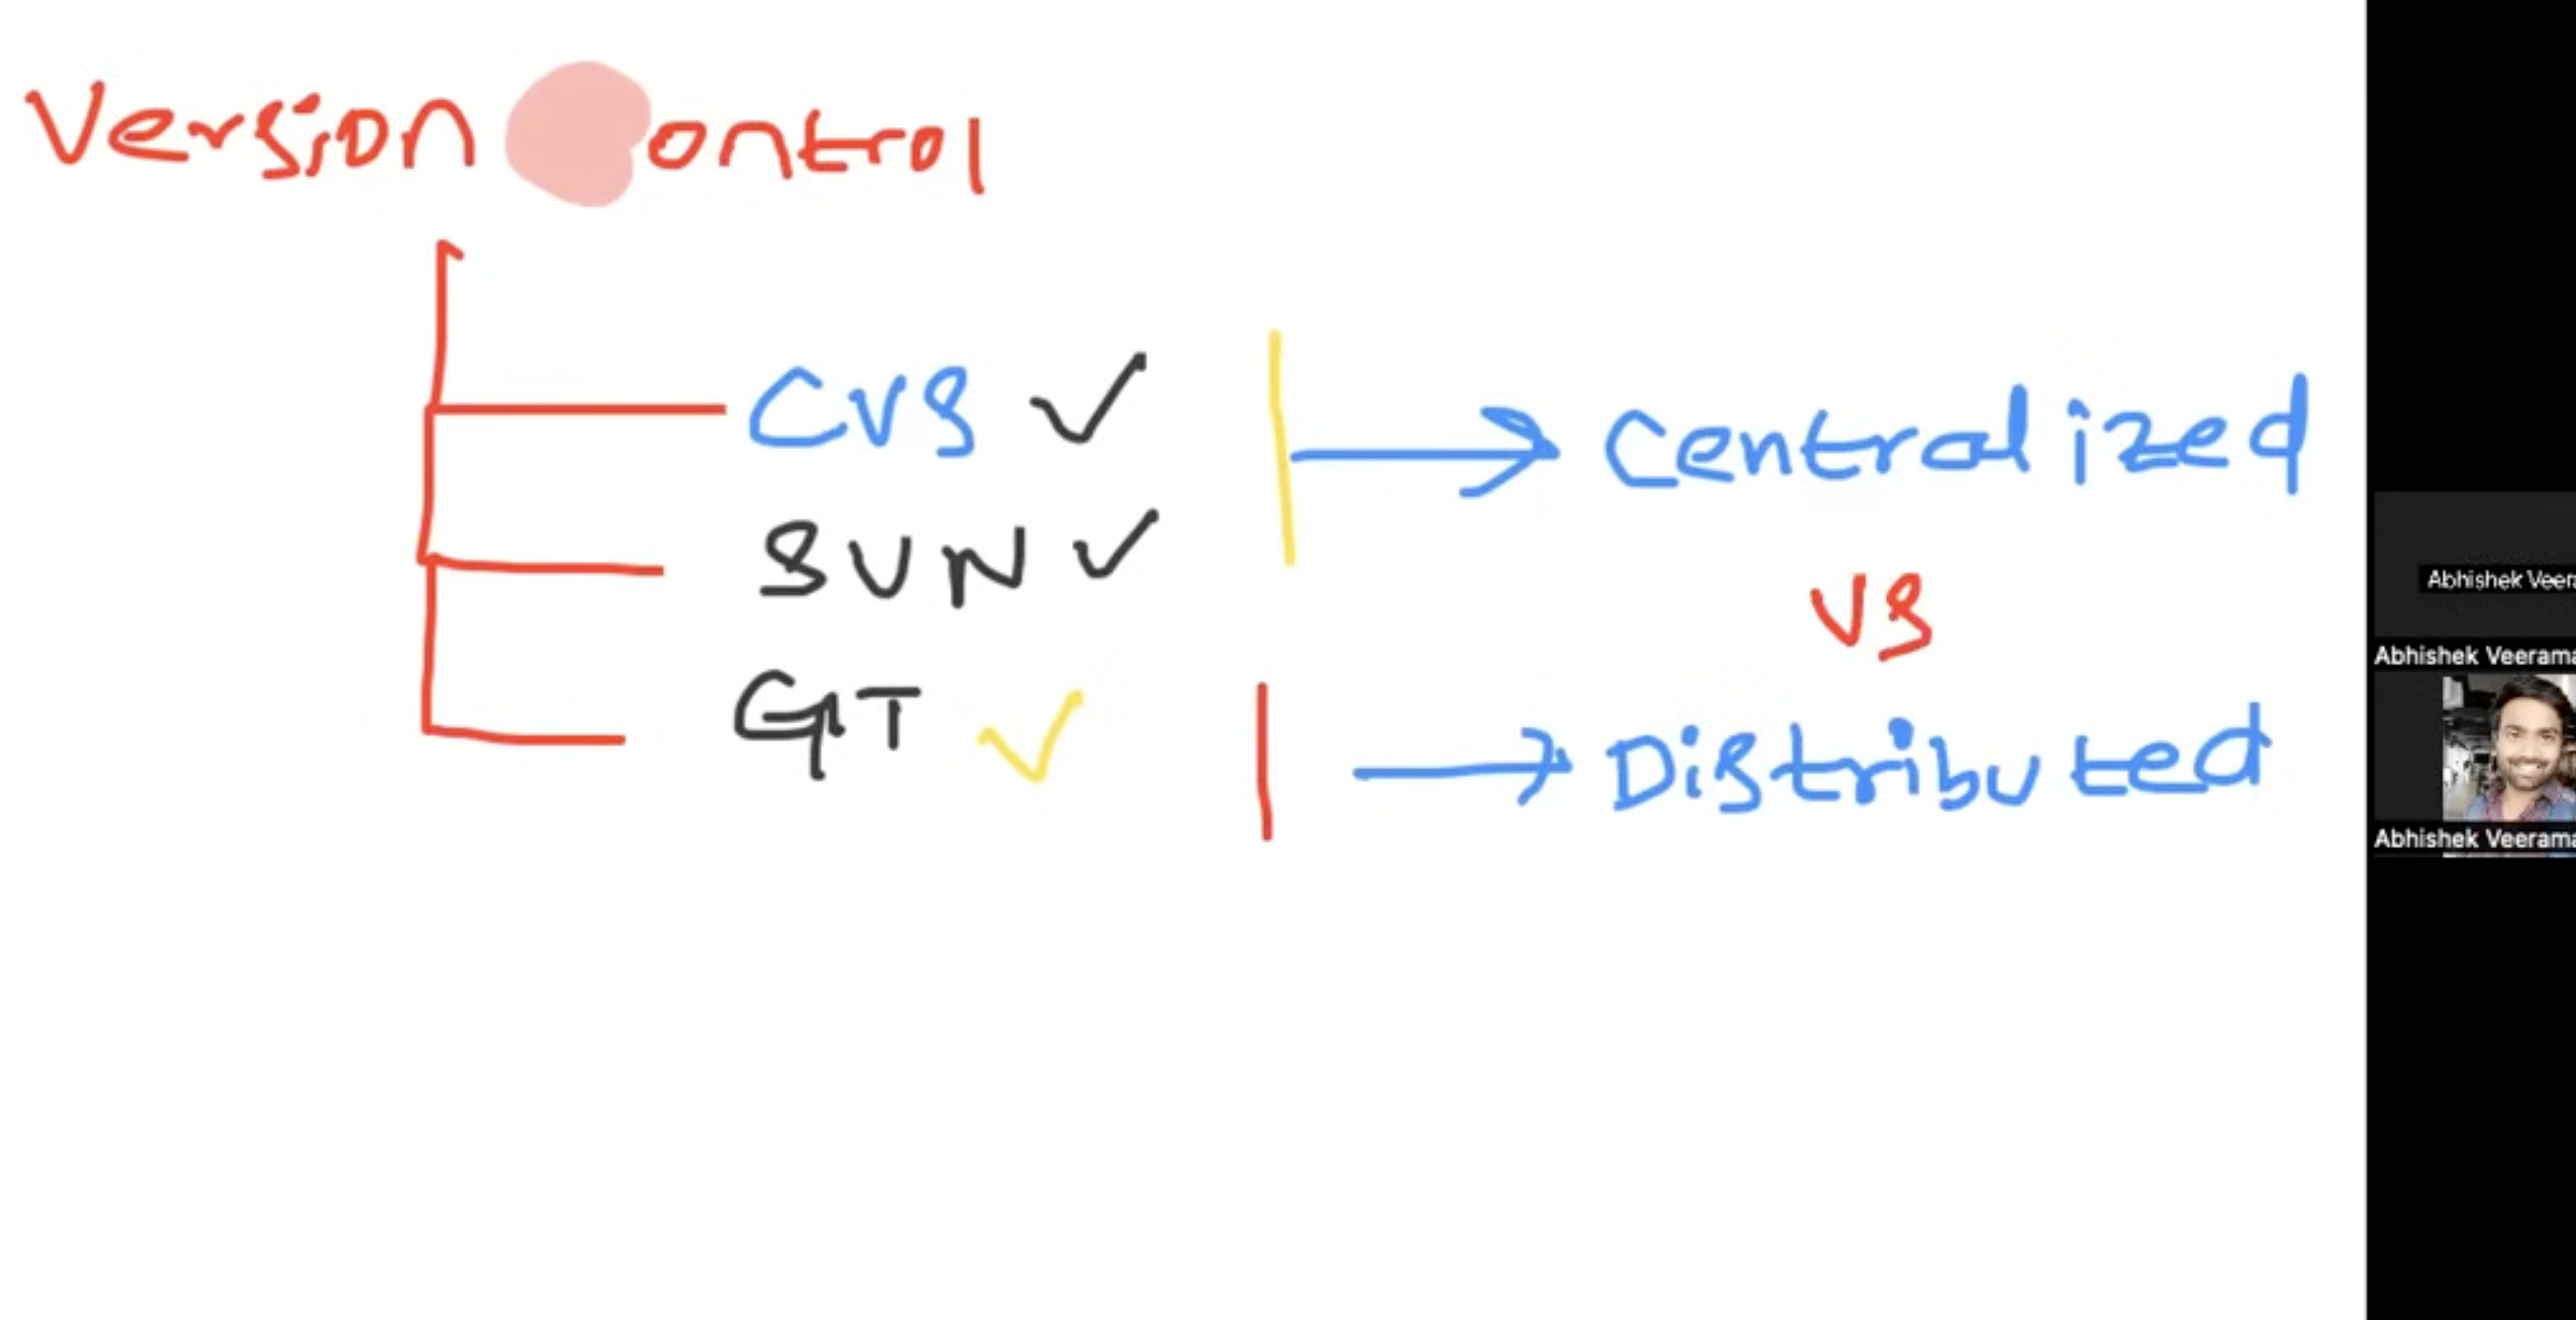 Version ontrol
CVS
SVN
GIT
Centralized
VS
Distributed
Abhishek Veer
Abhishek Veerama
Abhishek Veerama